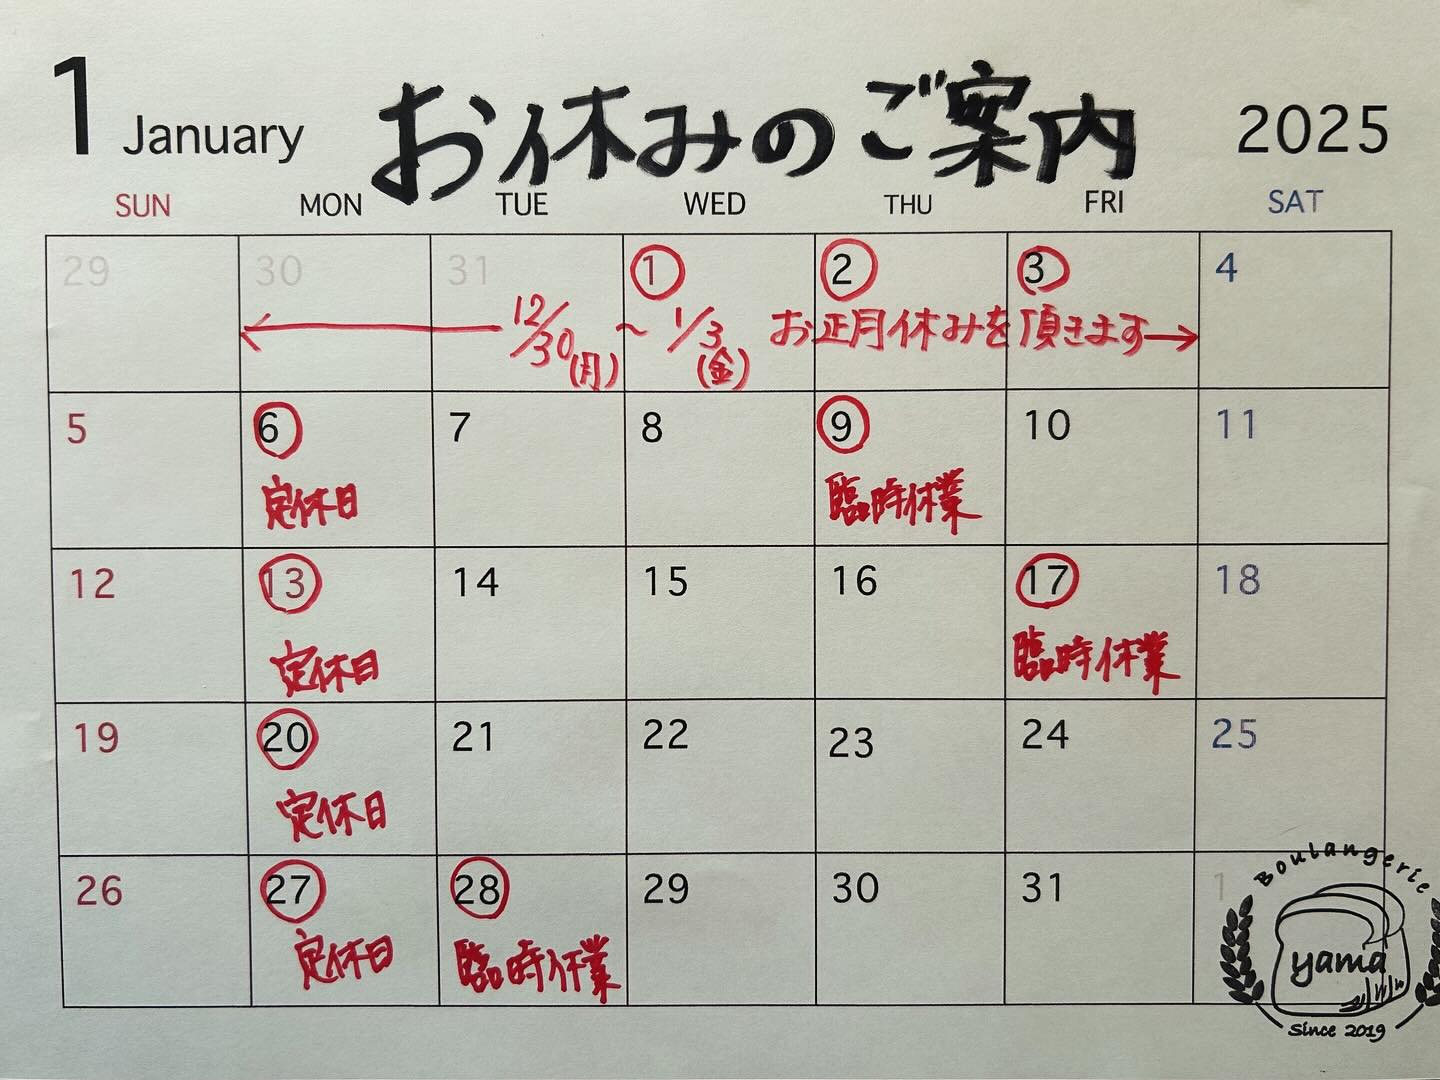 1 January お休みのご案内 2025
SUN MON TUE WED THU FRI SAT
29 30 31 1 2 3 4
12/30(月)～1/3(金) お正月休みを頂きます
5 6 7 8 9 10 11
定休日 臨時休業
12 13 14 15 16 17 18
定休日 臨時休業
19 20 21 22 23 24 25
定休日
26 27 28 29 30 31 1
定休日 臨時休業
Boulangerie
yama
Since 2019